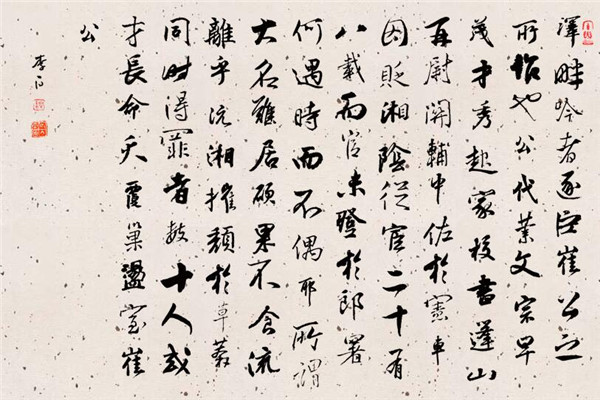 澤畔吟者逐臣崔公之
所作也公代業文宗早
茂才秀起家校書蓬山
再尉關輔中佐於憲車
因貶湘陰從宦二十有
八載而官未登於郎署
何遇時而不偶耶所謂
大名難居碩果不食流
離乎沅湘摧頹於草莽
同時得罪者數十人或
才長命夭覆巢盪室崔
公
李白